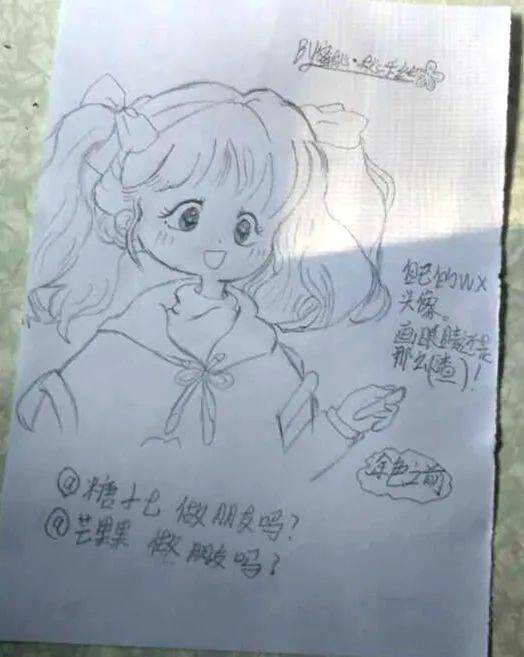 BY
自己的wx
头像。
画眼睛还是
那么(渣)!
涂色之前
@糖 做朋友吗?
@芒果果 做朋友吗?